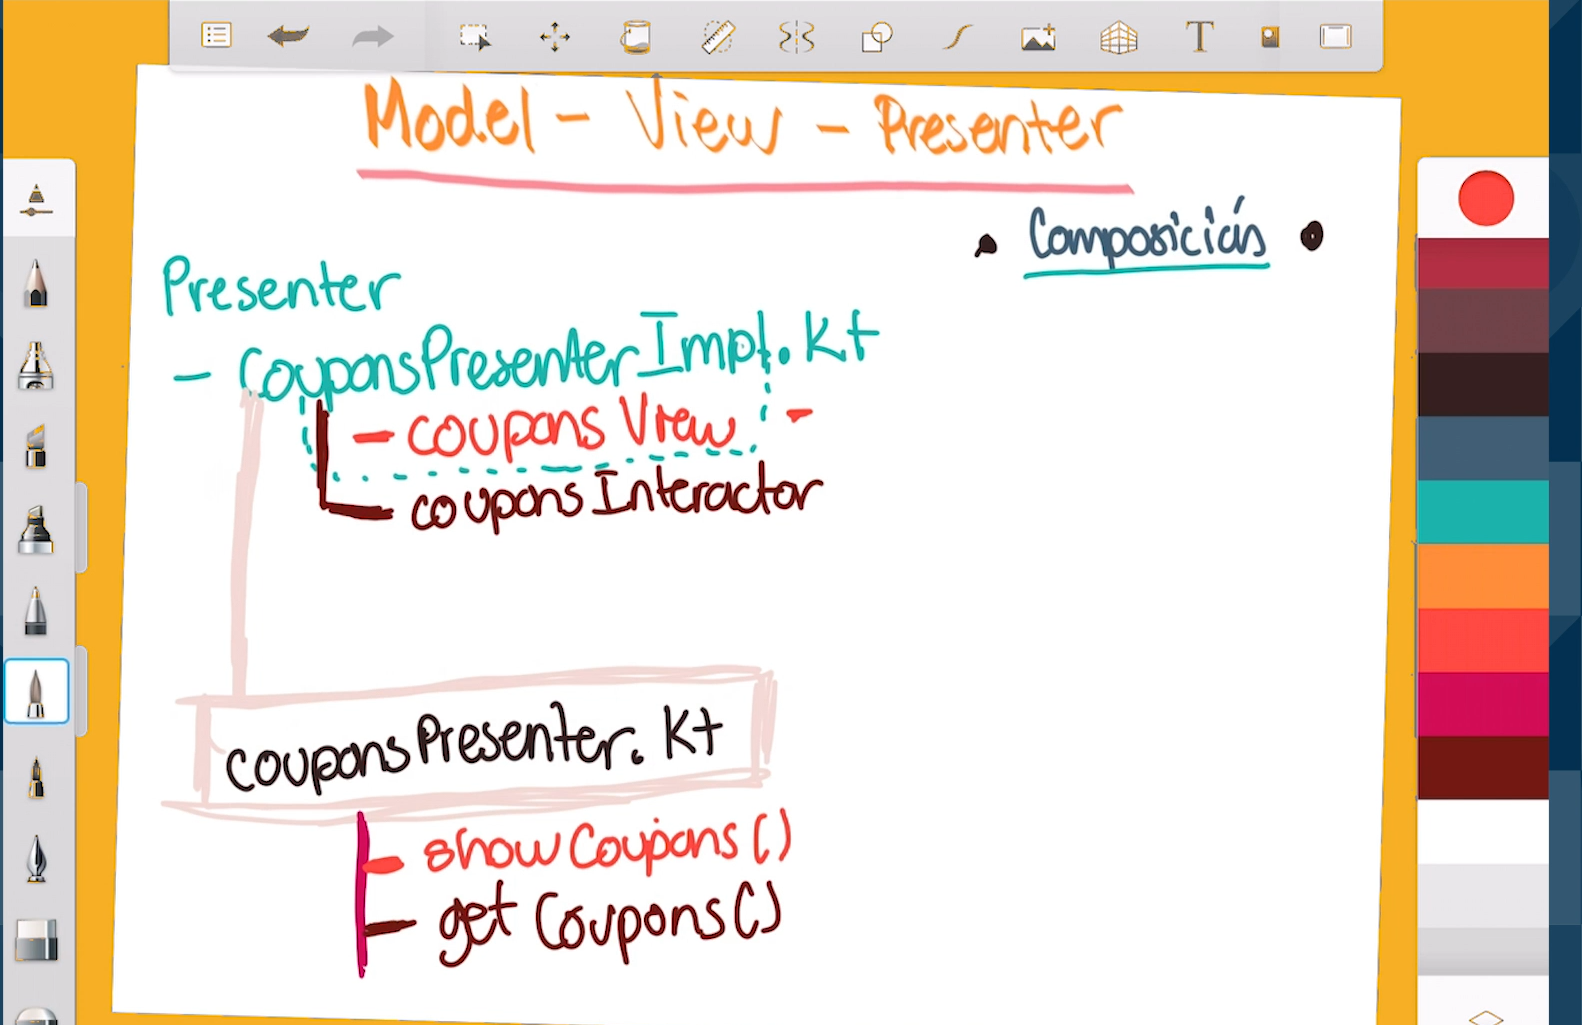 Model - View - Presenter
• Composición •
Presenter
- CouponsPresenterImpl.kt
- couponsView -
couponsInteractor
couponsPresenter.kt
- showCoupons()
- getCoupons()
T